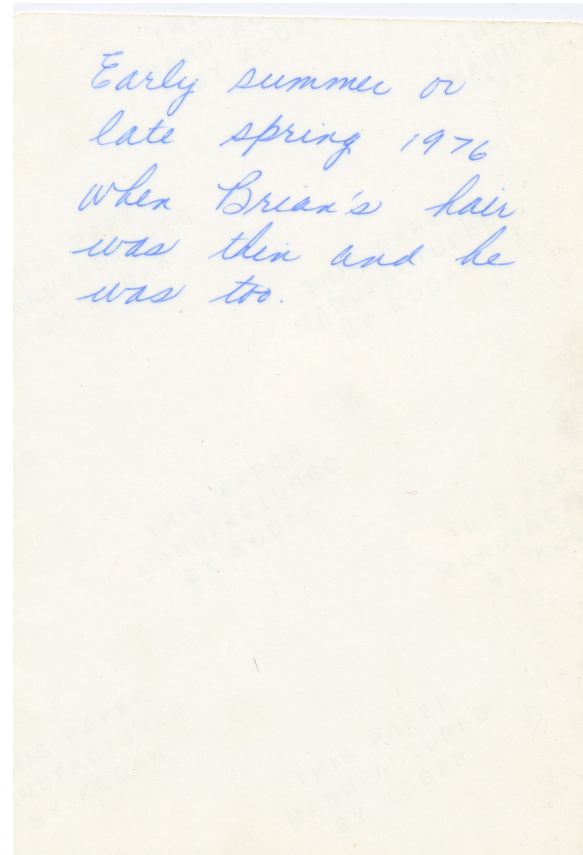 Early summer or
late spring 1976
when Brian's hair
was thin and he
was too.
THIS PAPER
MANUFACTURED
BY KODAK